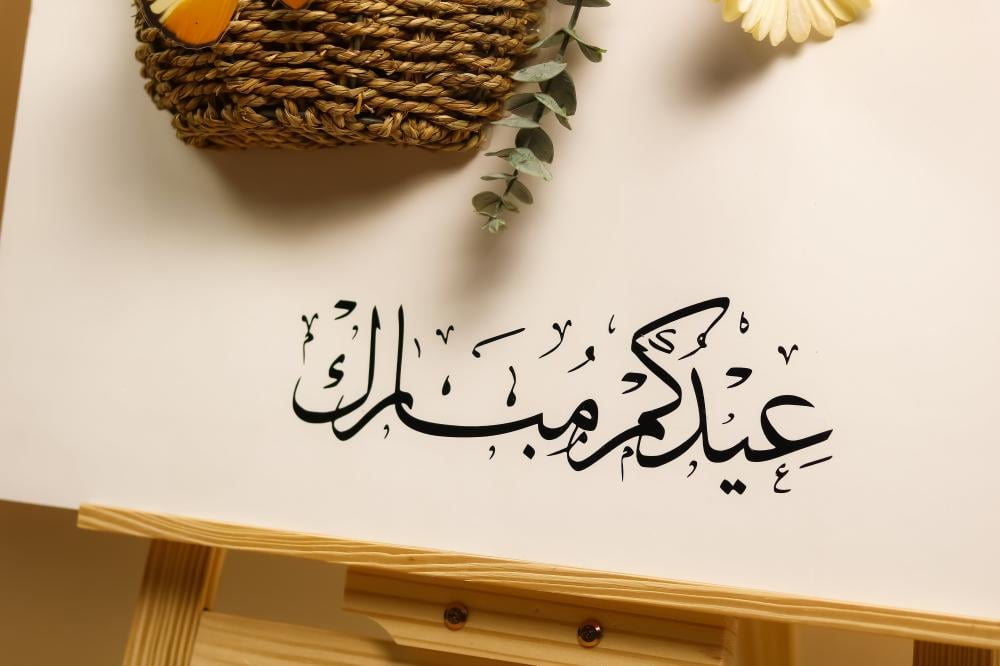 عِيدُكُمْ مُبَارَكْ